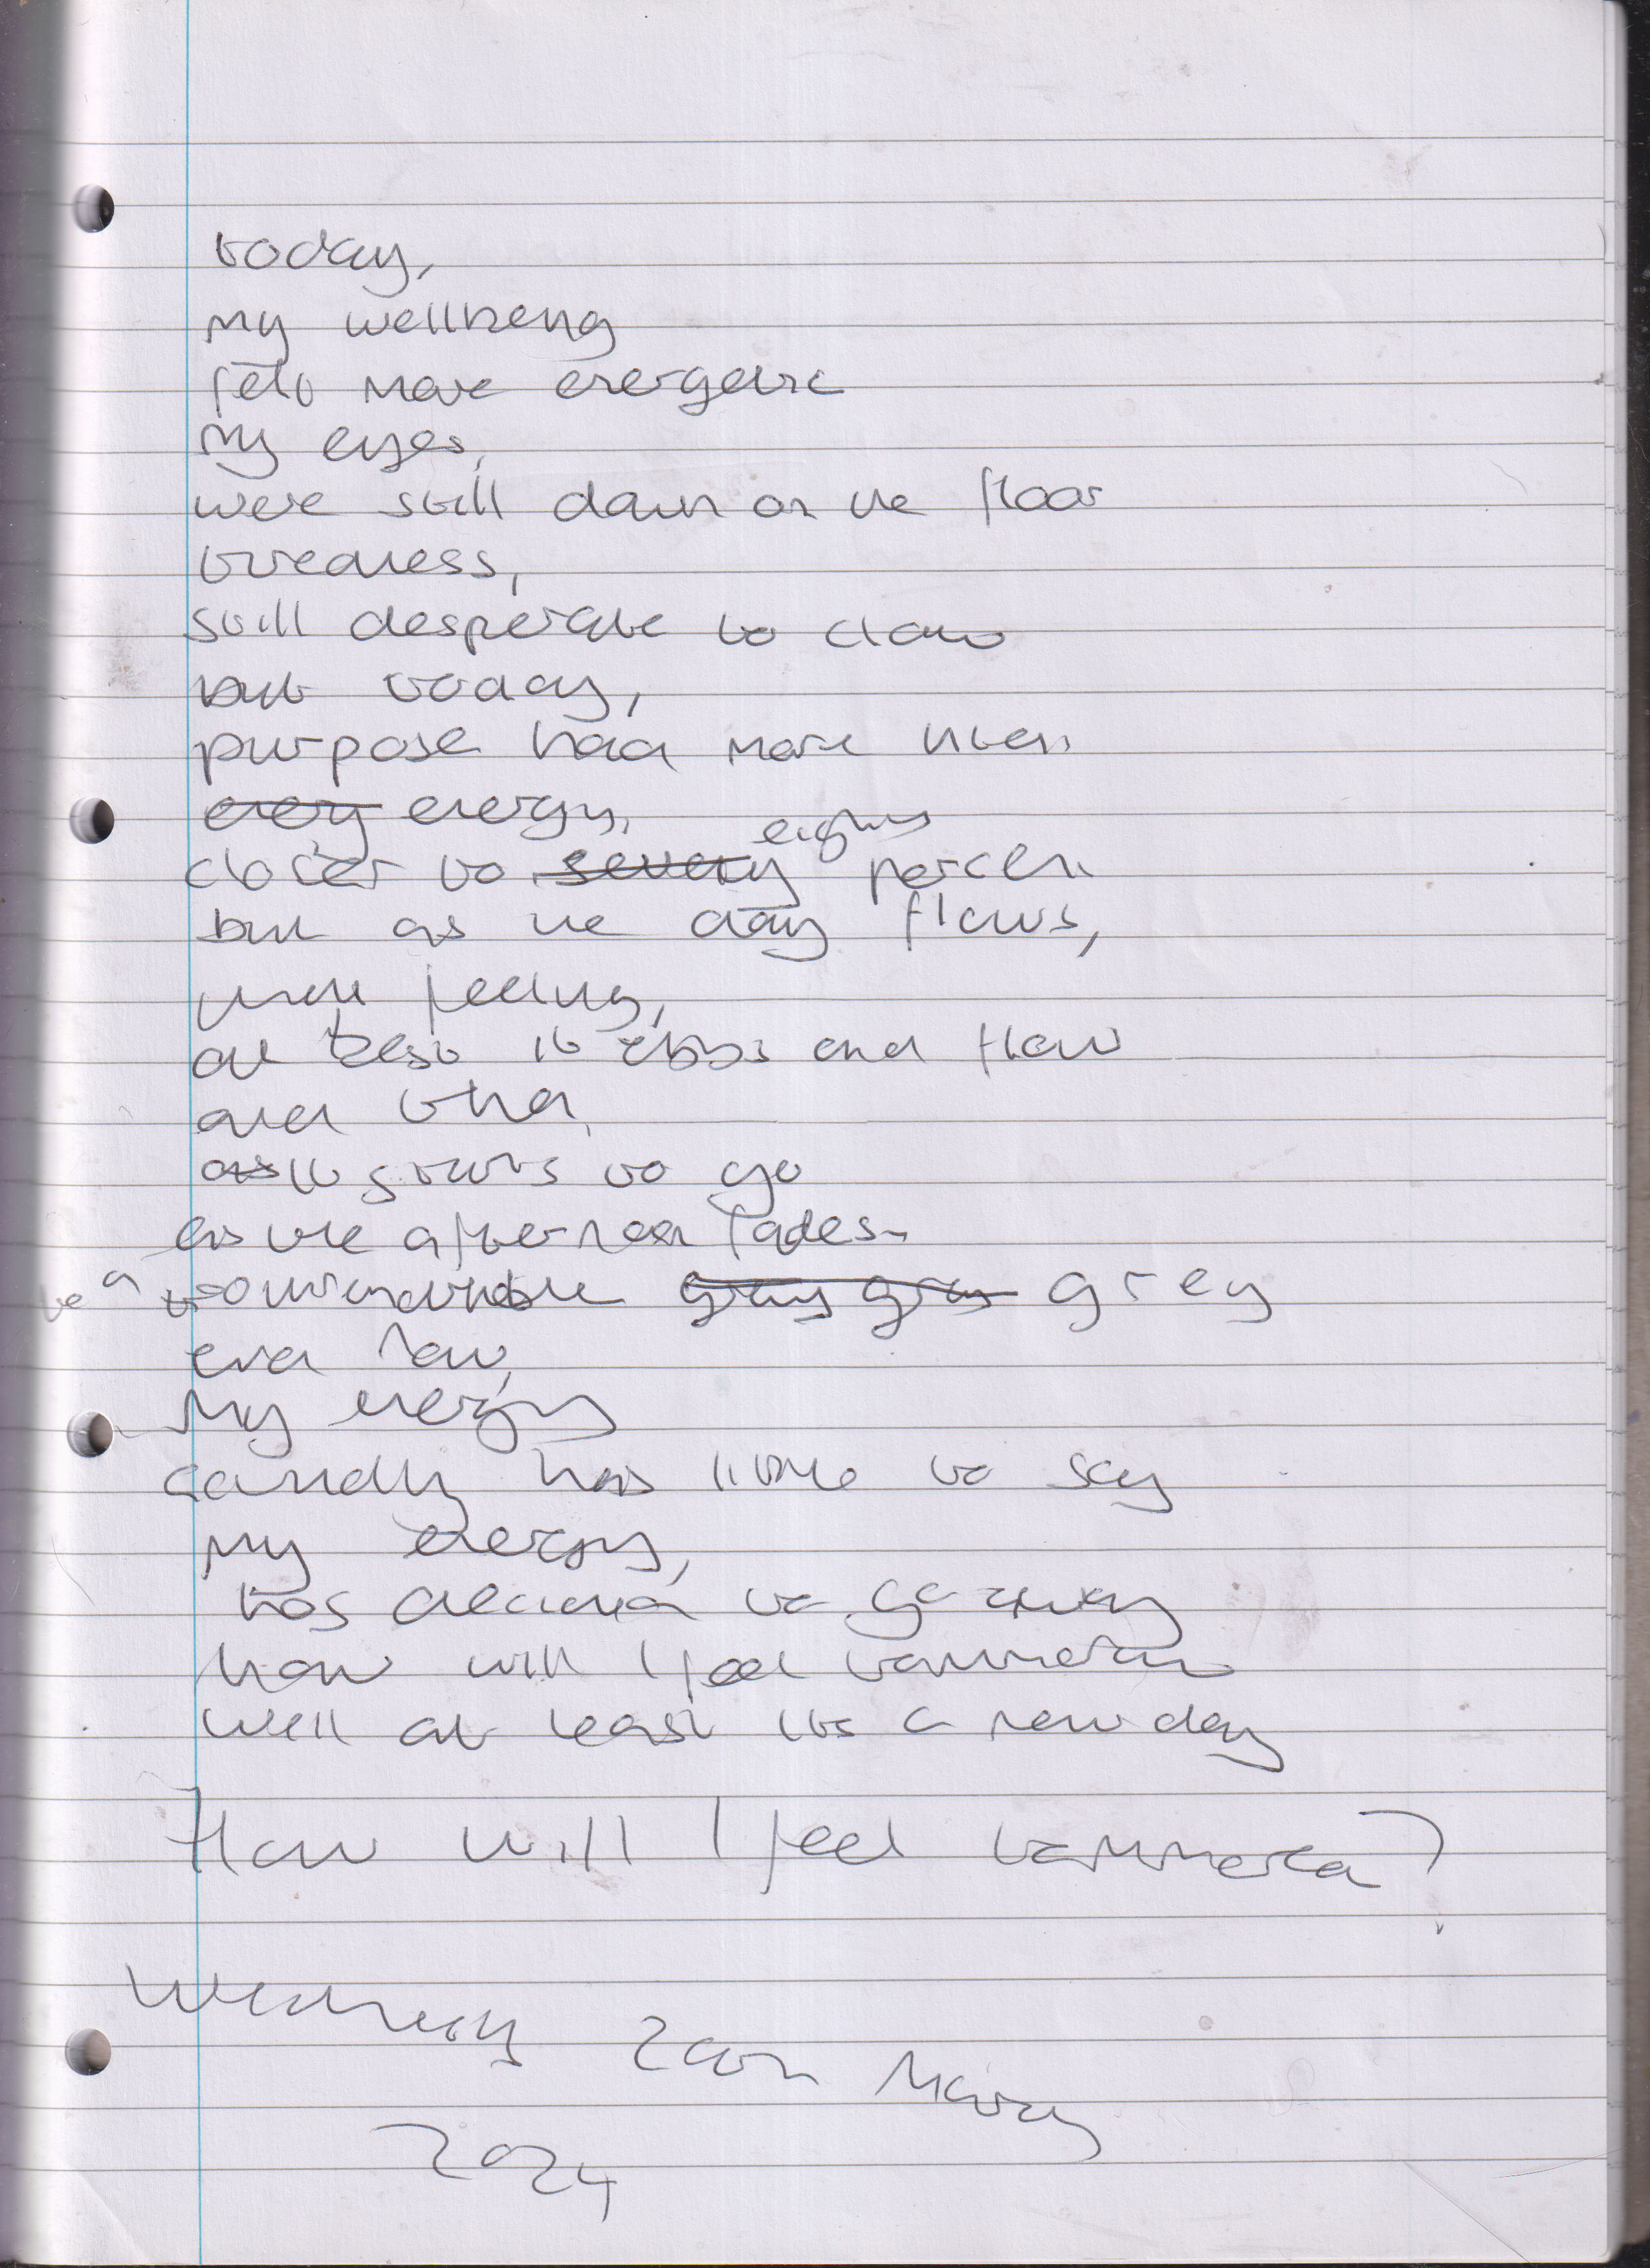 today,
my wellbeing
felt more energetic
my eyes,
were still down on the floor
tiredness,
still desperate to claw
but today,
purpose had more intent
energy energy,
closer to seventy eighty percent
but as the day flows,
feeling,
at best it ebbs and flow
and then,
as it starts to go
as the afternoon fades
to a grey grey grey
and now,
my energy
candidly has little to say
my energy,
has decided to go away
how will I feel tomorrow
well at least its a new day
How will I feel tomorrow?
Wednesday 20th
2024